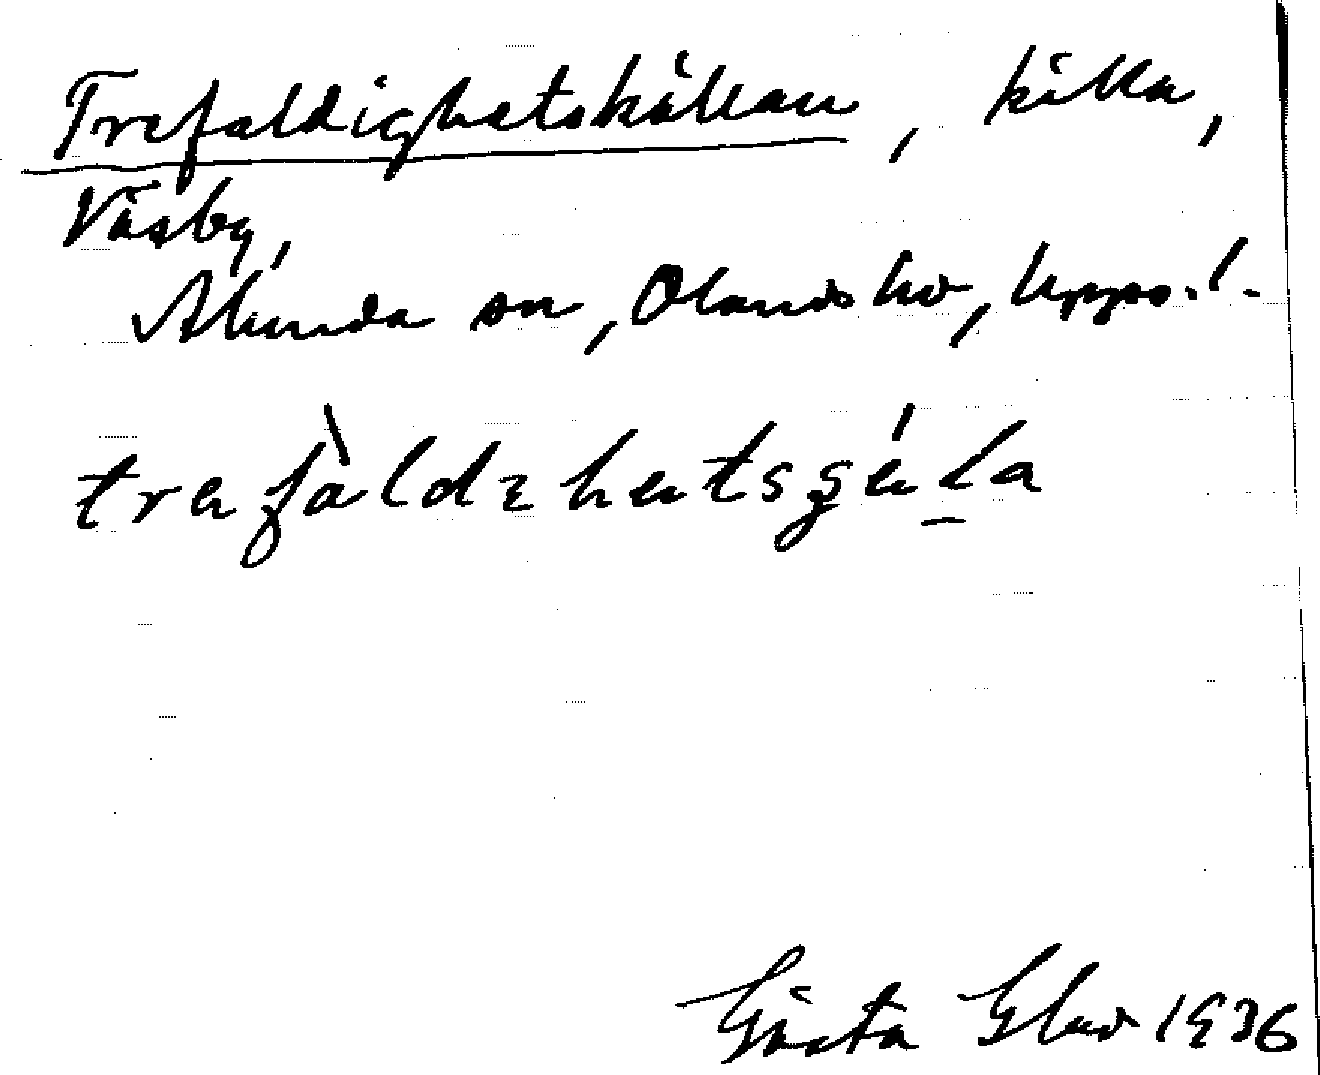 Trefaldighetskällan, källa,
Väsby,
Alunda sn, Olands hd, Upps. l.
trefàldᵻhetsʂɛ́la
Gösta 1936